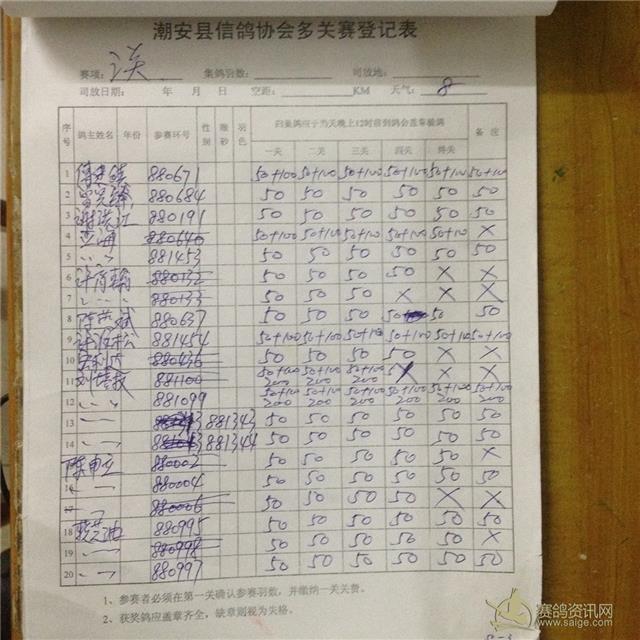 潮安县信鸽协会多关赛登记表
赛项: 集鸽羽数: 司放地:
司放日期: 年 月 日 空距: KM 天气: 8
序号 鸽主姓名 年份 参赛环号 性别 眼砂 羽色 归巢鸽应于当天晚上12时前到鸽会盖章验鸽 备注
一关 二关 三关 四关 终关
1 880671 50+100 50+100 50+100 50+100 50+100 50+100
2 880684 50 50 50 50 50 50
3 谢洪江 880191 50 50 50 50 50 50
4 880640 50+100 50+100 50+100 50+100 50+100 X
5 881453 50 50 50 50 50 50
6 880132 50 50 50 50 X X
7 880133 50 50 50 X X X
8 880637 50 50 50 50 50 50
9 881454 50+100 50+100 50+100 50+100 50+100 50+100
10 880436 50 50 50 50 X X
11 881100 50+100 200 50+100 200 50+100 200 X X
12 881099 50+100 200 50+100 200 50+100 200 50+100 200 50+100 200 50+100 200
13 881343 50 50 50 50 50 50
14 881344 50 50 50 50 50 50
陈申立 880002 50 50 50 50 50 X
16 880004 50 50 50 50 50 50
880006 50 50 50 50 X X
18 880995 50 50 50 50 50 50
19 880998 50 50 50 50 50 X
20 880997 50 50 50 50 50 50
1、参赛者必须在第一关确认参赛羽数，并缴纳一关关费。
2、获奖鸽应盖章齐全，缺章则视为失格。
赛鸽资讯网
www.saige.com